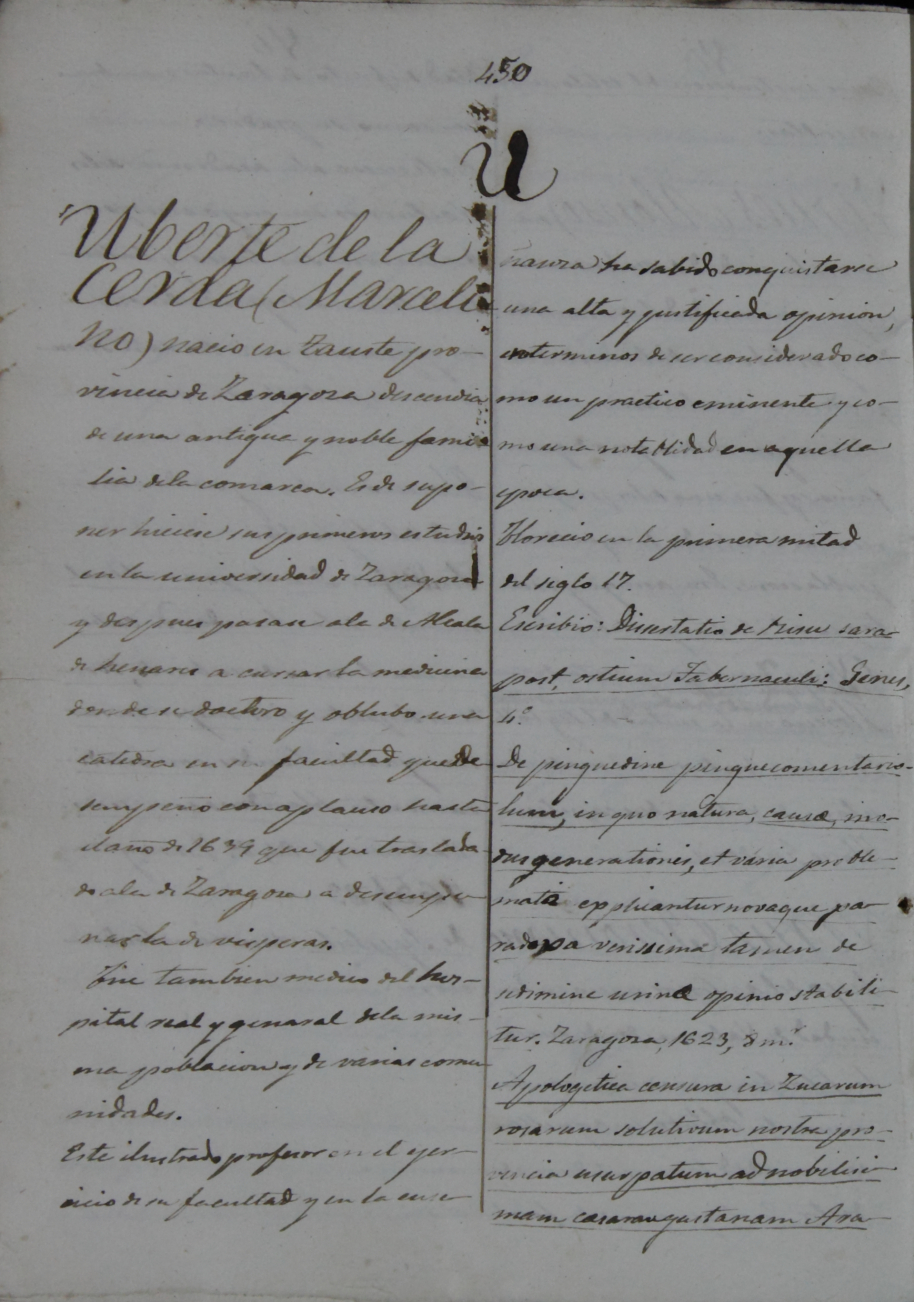 450
U
Uberte de la
Cerda (Marceli
no) nacio en Tauste pro-
vincia de Zaragoza descendia
de una antigua y noble fami
lia de la comarca. Es de supo-
ner hiciese sus primeros estudios
en la universidad de Zaragoza
y despues pasase a la de Alcala
de henares a cursar la medicina
donde se doctoro y obtubo una
catedra en su facultad que de
sempeño con aplauso hasta
el año de 1639 que fue traslada
do a la de Zaragoza a desempe
ñar la de visperas.
Fue tambien medico del hos-
pital real y general de la mis-
ma poblacion y de varias comu
nidades.
Este ilustrado profesor en el ejer-
cicio de su facultad y en la ense-
ñanza ha sabido conquistarse
una alta y justificada opinion,
en terminos de ser considerado co-
mo un practico eminente y co-
mo una notabilidad en aquella
epoca.
Florecio en la primera mitad
del siglo 17.
Escribio: Disertatio de risu sara-
post, ostium Tabernaculi: Genes,
4.º
De pinguedine pinguecomentario-
lum, in quo natura, causæ, mo-
dus generationis, et varia proble-
mata explicantur novaque pa-
radoxa verissima tamen de
sedimine urinæ opinio stabili-
tur. Zaragoza, 1623, 8 m.º
Apologetica censura in Zucarum
rosarum solutivum nostre pro-
vincia usurpatum ad nobilisi-
mam casaraugustanam Ara-